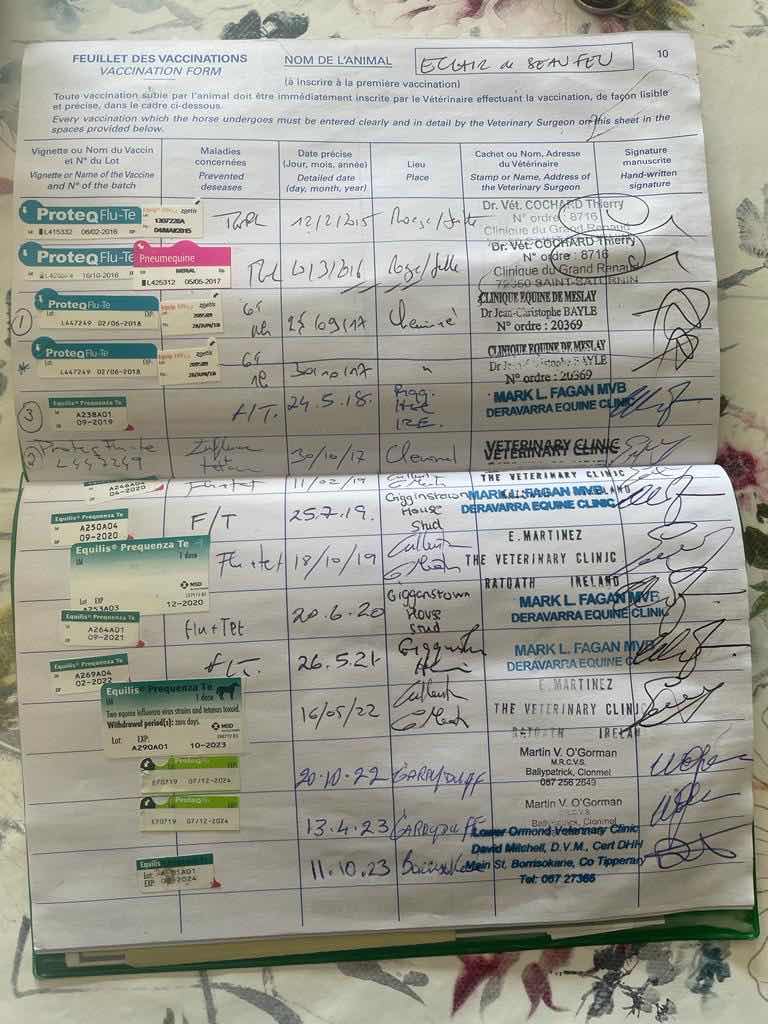 FEUILLET DES VACCINATIONS
VACCINATION FORM
NOM DE L'ANIMAL
ECLAIR de BEAUFEU
10
(à inscrire à la première vaccination)
Toute vaccination subie par l'animal doit être immédiatement inscrite par le Vétérinaire effectuant la vaccination, de façon lisible
et précise, dans le cadre ci-dessous.
Every vaccination which the horse undergoes must be entered clearly and in detail by the Veterinary Surgeon on this sheet in the
spaces provided below.
Vignette ou Nom du Vaccin
et N° du Lot
Vignette or Name of the Vaccine
and N° of the batch
Maladies
concernées
Prevented
deseases
Date précise
(Jour, mois, année)
Detailed date
(day, month, year)
Lieu
Place
Cachet ou Nom, Adresse
du Vétérinaire
Stamp or Name, Address
of the Veterinary Surgeon
Signature
manuscrite
Hand-written
signature
ProteqFlu-Te
L415332 08/02/2016
zoetis
12/2/2015
Dr. Vét. COCHARD Thierry
N° ordre : 8716
Clinique du Grand Renaud
ProteqFlu-Te
16/10/2016
Pneumequine
MERIAL
L425312 05/05/2017
10/3/2016
Dr. Vét. COCHARD Thierry
N° ordre : 8716
Clinique du Grand Renaud
72360 SAINT-SATURNIN
1
ProteqFlu-Te
L447249 02/06/2018
zoetis
25/09/17
CLINIQUE EQUINE DE MESLAY
Dr Jean-Christophe BAYLE
N° ordre : 20369
ProteqFlu-Te
L447249 02/06/2018
zoetis
CLINIQUE EQUINE DE MESLAY
Dr Jean-Christophe BAYLE
N° ordre : 20369
3
Equilis® Prequenza Te
A238A01
09-2019
F/T.
24.5.18.
Gigg.
Hse
IRE.
MARK L. FAGAN MVB
DERAVARRA EQUINE CLINIC
2
Proteq Flu-te
L447249
30/10/17
VETERINARY CLINIC
04-2020
Flu+tet
11/02/19
THE VETERINARY CLINIC
Equilis® Prequenza Te
A250A04
09-2020
F/T
25.7.19.
Gigginstown
House
Stud
MARK L. FAGAN MVB
DERAVARRA EQUINE CLINIC
Equilis® Prequenza Te
1 dose
MSD
Lot EXP
A253A03 12-2020
Flu+tet
18/10/19
E. MARTINEZ
THE VETERINARY CLINIC
RATOATH IRELAND
Equilis® Prequenza Te
A264A01
09-2021
flu+Tet
20.6.20
Giggenstown
House
Stud
MARK L. FAGAN MVB
DERAVARRA EQUINE CLINIC
Equilis® Prequenza Te
A269A04
02-2022
f/T.
26.5.21
MARK L. FAGAN MVB
DERAVARRA EQUINE CLINIC
Equilis® Prequenza Te
1 dose
Two equine influenza virus strains and tetanus toxoid.
Withdrawal period(s): zero days.
MSD
Lot: EXP:
A290A01 10-2023
16/05/22
E. MARTINEZ
THE VETERINARY CLINIC
RATOATH IRELAND
ProteqFlu
E70719 07/12-2024
20.10.22
GARRYDUFF
Martin V. O'Gorman
M.R.C.V.S.
Ballypatrick, Clonmel
087 256 2649
ProteqFlu
E70719 07/12-2024
13.4.23
GARRYDUFF
Martin V. O'Gorman
Ballypatrick, Clonmel
Equilis
Lot:
EXP:
11.10.23
Lower Ormond Veterinary Clinic
David Mitchell, D.V.M., Cert DHH
Main St, Borrisokane, Co Tipperary
Tel: 067 27366